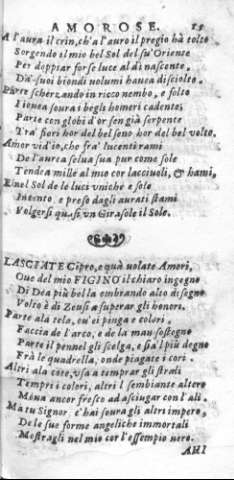 AMOROSE. 15
A l'aura il crin, ch'a l'auro il pregio hà tolto
Sorgendo il mio bel Sol del su' Oriente
Per doppiar forse luce al dì nascente,
Da' suoi biondi volumi hauea disciolto.
Parte scherzando in ricco nembo, e folto
Piouea soura i begli homeri cadente;
Parte con globi d'or sen gìa serpente
Tra' fiori hor del bel seno hor del bel volto.
Amor vid'io, che frà' lucenti rami
De l'aurea selua sua pur come sole
Tendea mille al mio cor lacciuoli, & hami,
E nel Sol de le luci vniche e sole
Intento e preso dagli aurati stami
Volgersi quasi vn Girasole il Sole.
LASCIATE Cipro, e quà volate Amori,
Oue del mio FIGINO il chiaro ingegno
Di Dea più bella embrando alto disegno
Volto è di Zeusi a superar gli honori.
Parte ala tela, ou' ei pinga e colori,
Faccia de l'arco, e de la man sostegno
Parte il pennel gli scelga, e sia 'l più degno
Frà le quadrella, onde piagate i cori.
Altri ala cote, vsa a temprar gli strali
Tempri i colori, altri l sembiante altero
Moua ancor fresco ad asciugar con l'ali.
Ma tu Signor c'hai soura gli altri impero,
De le sue forme angeliche immortali
Mostragli nel mio cor l'essempio vero.